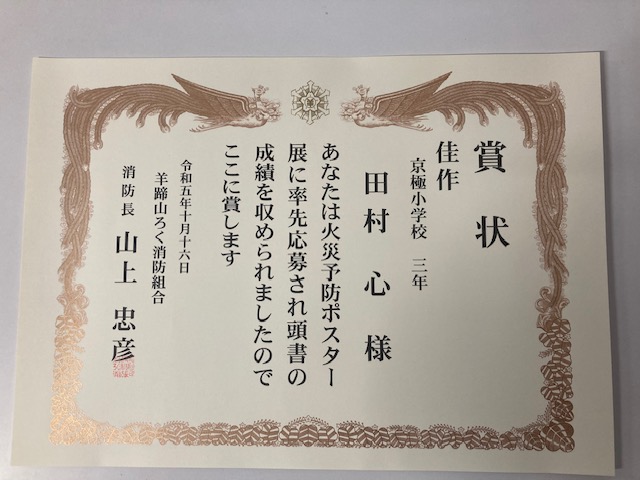 賞状
佳作
京極小学校 三年
田村 心 様
あなたは火災予防ポスター
展に率先応募され頭書の
成績を収められましたので
ここに賞します
令和五年十月十六日
羊蹄山ろく消防組合
消防長 山上 忠彦